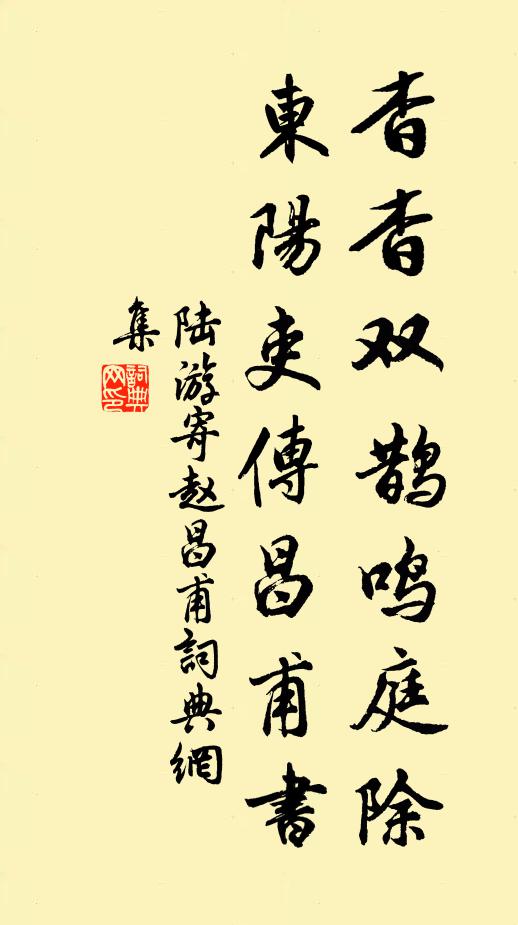 杳杳双鹊鸣庭除
東陽吏傳昌甫書
陆游寄赵昌甫詞典網
集
詞典
网印